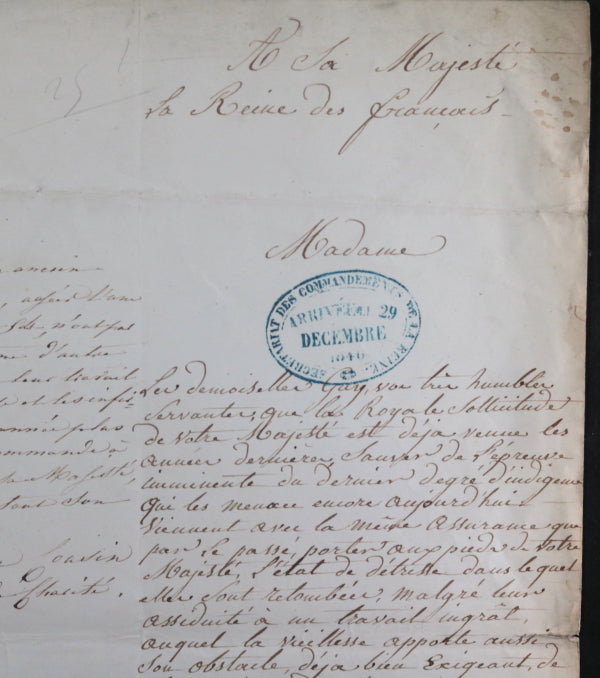 25
A Sa Majesté
La Reine des français
Madame
SECRÉTARIAT DES COMMANDEMENTS DE LA REINE
ARRIVÉ LE 29
DECEMBRE
1840
ancien
n'ont pas
d'autre
leur travail
et les infir
plus
commande à
Majesté,
tout son
Cousin
Charité.
Les demoiselles Gay, vos très humbles
Servantes, que la Royale Sollicitude
de Votre Majesté est déja venue les
années dernières, Sauver de l'épreuve
imminente du dernier degré d'indigence
qui les menace encore aujourd'hui
Viennent avec la même assurance que
par le passé, porter aux pieds de Votre
Majesté, l'état de détresse dans lequel
elles sont retombées, malgré leur
assiduité à un travail ingrât,
auquel la vieillesse apporte aussi
Son obstacle, déja bien Exigeant, de